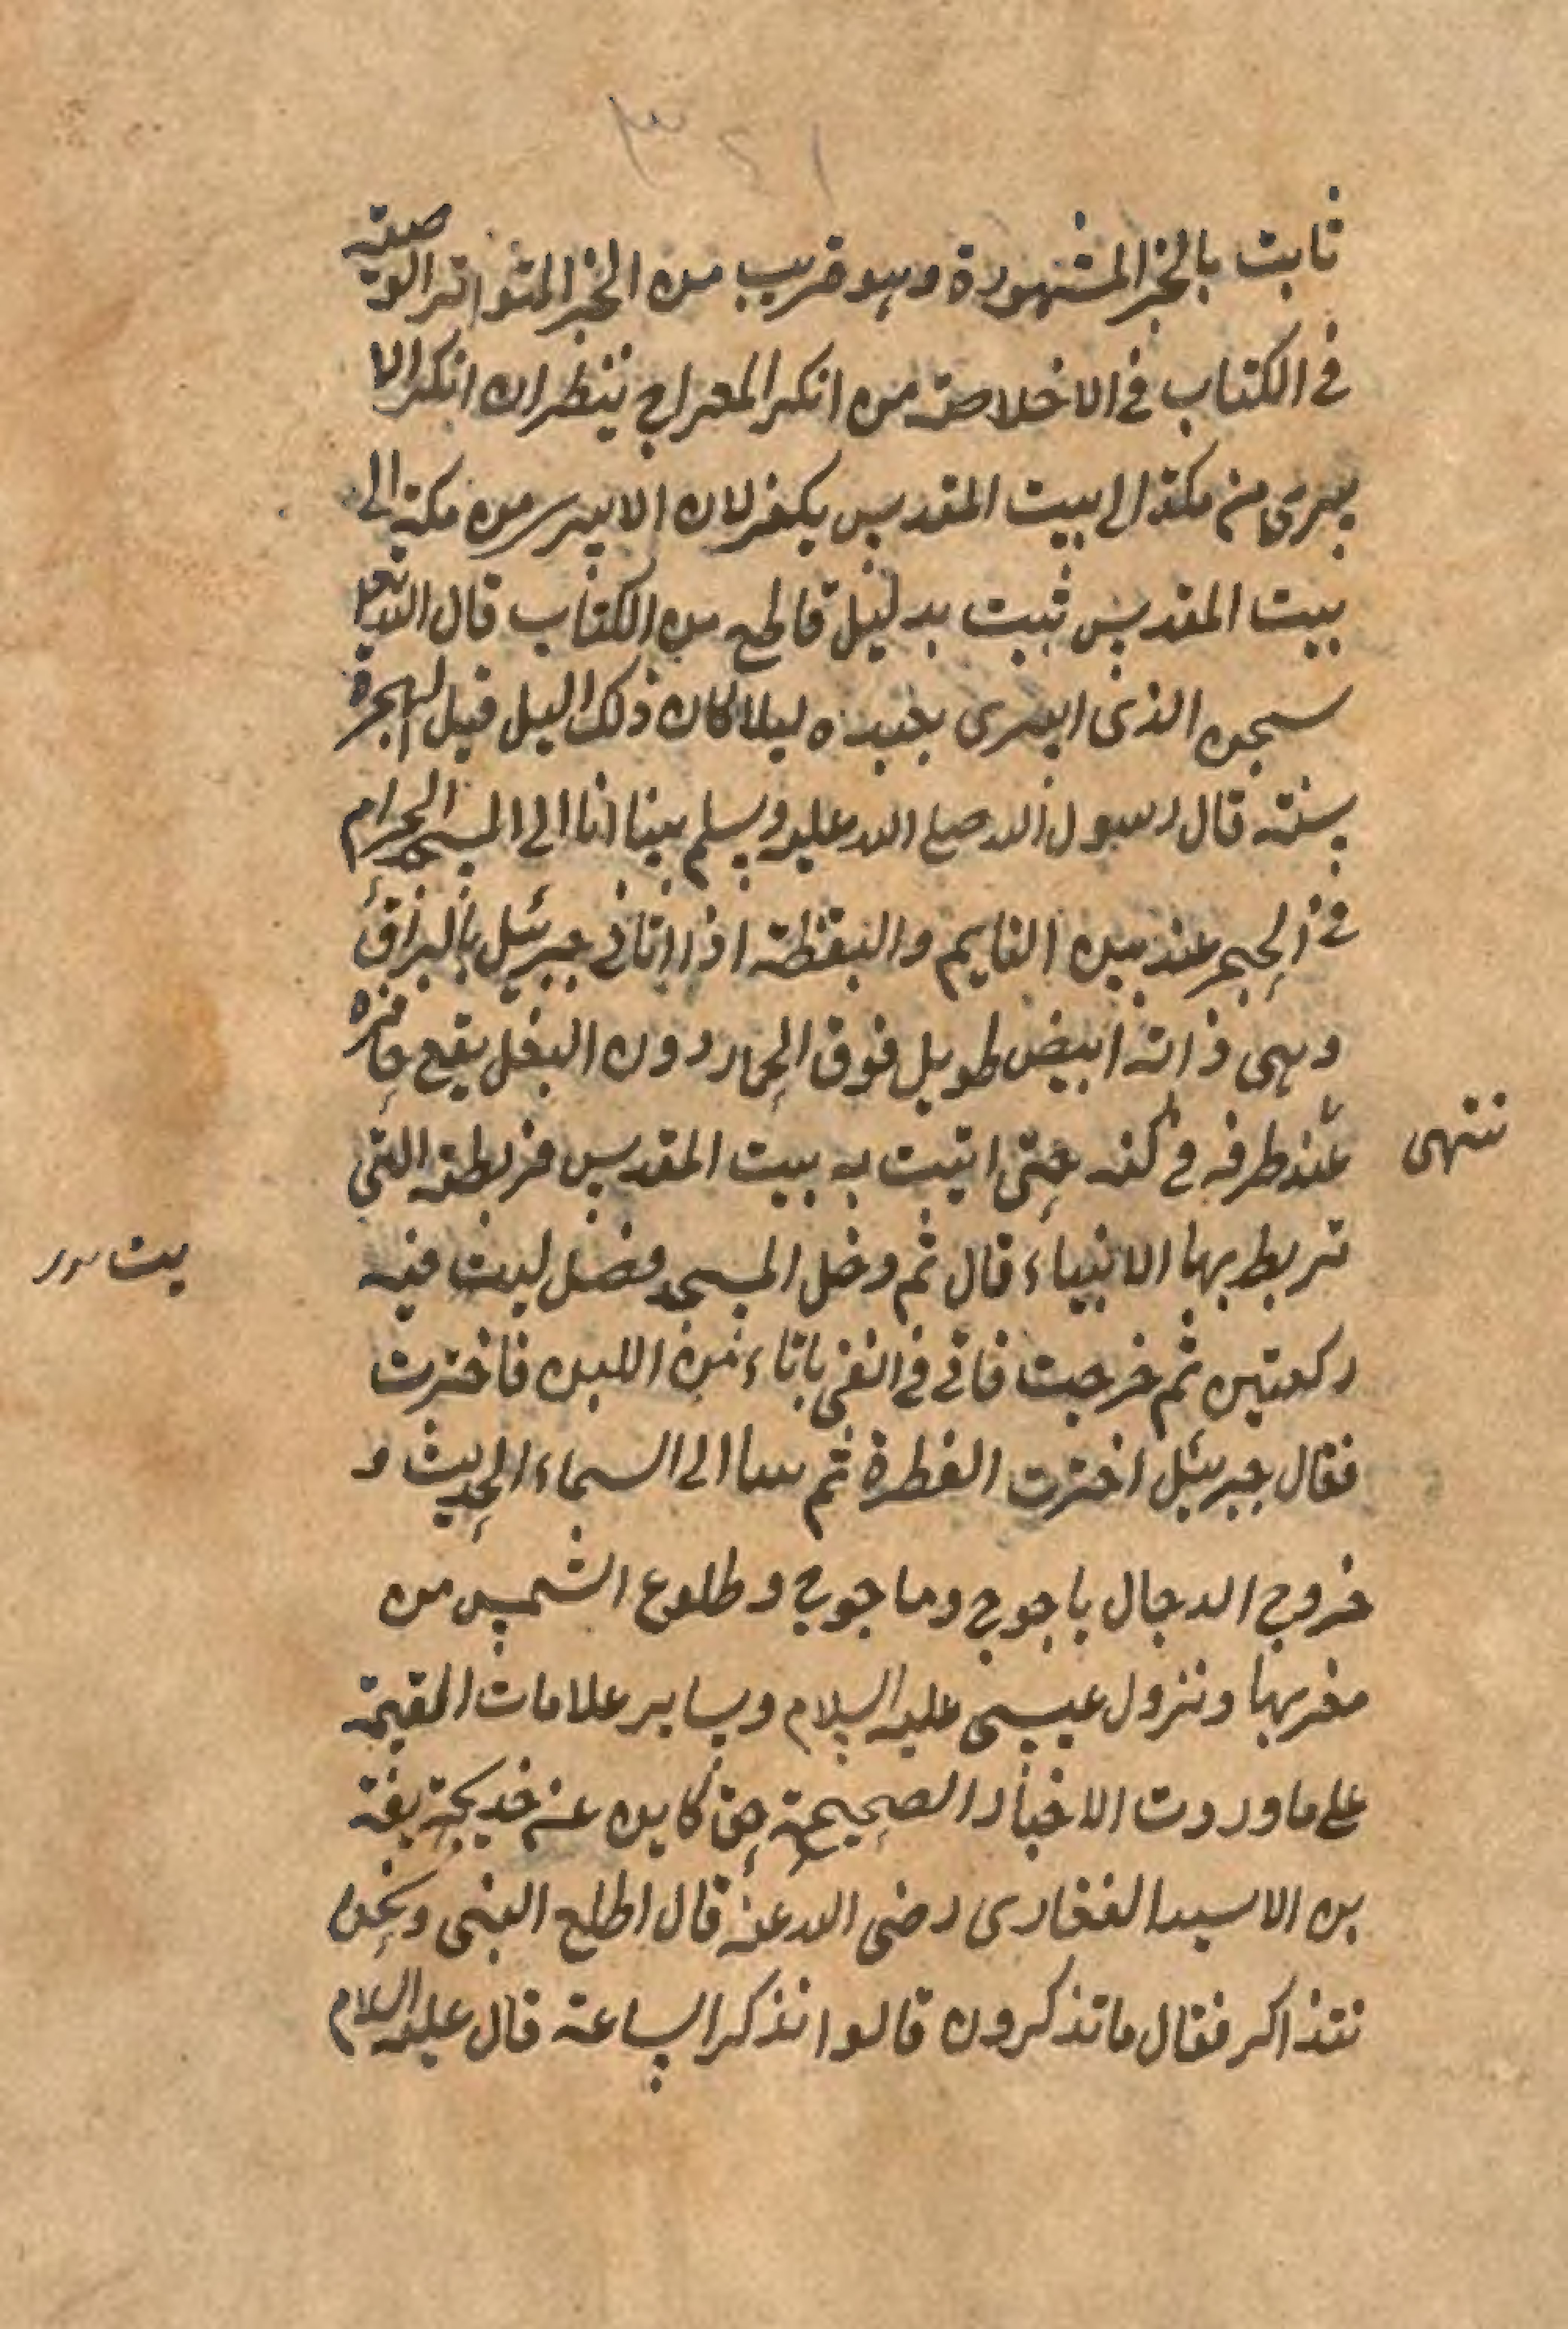 ثابت بالخبر المشهورة وهو قريب من الخبر المتواتر الوصية
في الكتاب في الاخلاصة من انكر المعراج ينظر ان انكر الا
يسرى من مكة الى بيت المقدس يكفر لان الايسر من مكة الى
بيت المقدس ثبت بدليل قاطع من الكتاب قال الله تعا
سبحن الذى اسرى بعبده ليلا كان ذلك اليل قبل الهجرة
بسنة قال رسول الله صلى الله عليه وسلم بينا انا الى المسجد الحرام
في الحجر عند بين النايم واليقظة اذا اتانى جبرئيل بالبراق
وهى ذاته ابيض طويل فوق الحمار دون البغل يقع حافره
عند طرفه في كنه حتى اتيت به بيت المقدس فربطته التى
تنتهى
تربط بها الانبياء قال ثم دخل المسجد فضل ليت فيه
ركعتين ثم خرجت فاتى في باناء من اللبن فاخترت
فقال جبرئيل اخترت الفطرة ثم الى السماء الحديث و
خروج الدجال ياجوج وماجوج وطلوع الشمس من
مغربها ونزول عيسى عليه السلام وساير علامات القيمة
على ما وردت الاخبار الصحيحة حق كاين عن خديجة يفة
بن الاسيد الغفارى رضى الله عنه قال اطلع النبى ونحن
نتذاكر فقال ما تذكرون قالوا نذكر الساعة قال عليه السلام